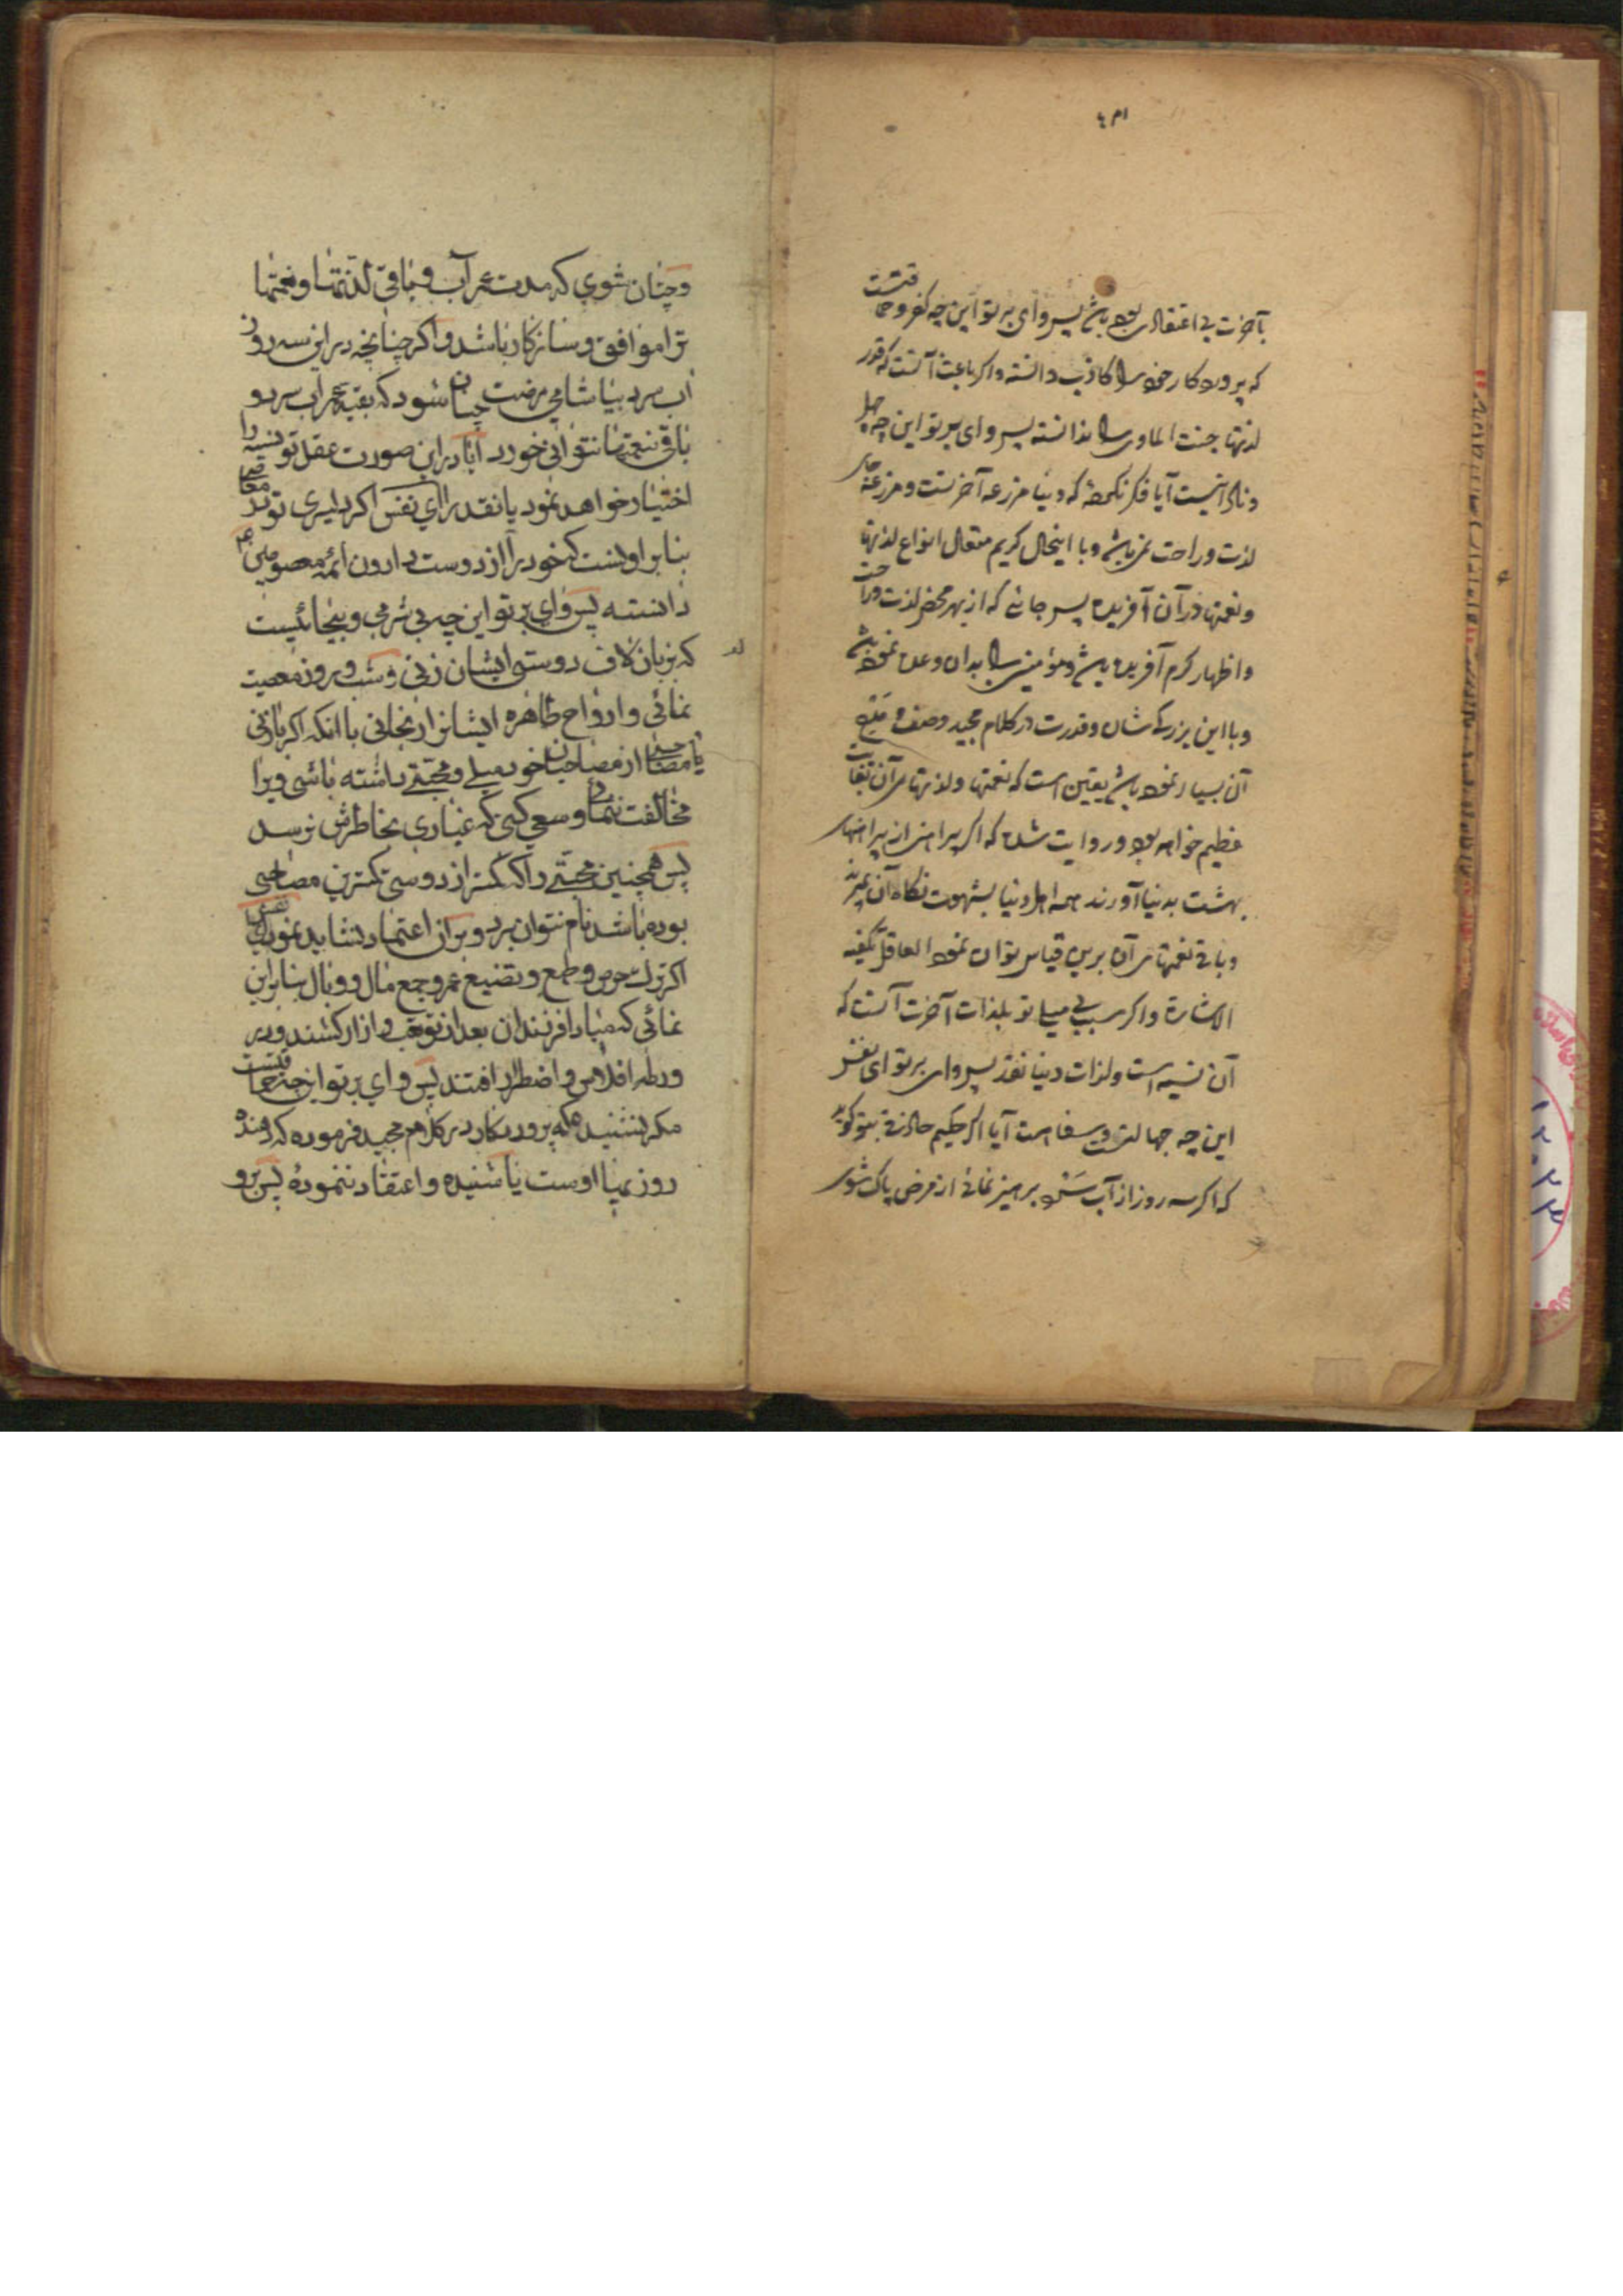 بآخرت بی اعتقادی بوده باشی پس وای بر تو این چه کفر و حماقتست
که پروردکار خود را کاذب دانسته و اکر باعث آنست که قدر
لذتهای جنت الماوی را ندانسته پس وای بر تو این چه جهل
و نادانیست آیا فکر نکرده که دنیا مزرعه آخرتست و مزرعه جای
لذت و راحت نمیباشد و با اینحال کریم متعال انواع لذتها
و نعمتها در آن آفریده پس جائی که از بهر محض لذت و راحت
و اظهار کرم آفریده باشد و مؤمنین را بدان وعده نموده باشد
و با این بزرکی شان و قدرت در کلام مجید وصف و مدح
آن بسیار نموده باشد یقین است که نعمتها و لذتهای آن بغایت
عظیم خواهد بود و روایت شده که اکر پیراهنی از پیراهنهای
بهشت بدنیا آورند همه اهل دنیا بشهوت نکاه آن بمیرند
و باقی نعمتهای آن برین قیاس توان نمود العاقل تکفیه
الاشارة و اکر سبب بی میلی تو بلذات آخرت آنست که
آن نسیه است و لذات دنیا نقد پس وای بر تو ای نفس
این چه جهالت و سفاهت است آیا اکر حکیم حاذقی بتو کوید
که اکر سه روز از آب سرد پرهیز نمائی از مرض پاک شوی
وچنان شوی که مدت عمر آب و باقی لذتها و نعمتها
ترا موافق و سازکار باشد و اکر چنانچه در این سه روز
آب سرد بیاشامی مرضت چنان شود که بقیه عمر آب سرد و
باقی نعمتها نتوانی خورد آیا در این صورت عقل تو نسیه را
اختیار خواهد نمود یا نقد را ای نفس اکر دلیری تو در معاصی
بنابر اونست که خود را از دوست داران ائمه معصومین ع
دانسته پس وای بر تو این چه بی شرمی و بیحیائیست
که بزبان لاف دوستی ایشان زنی و شب و روز معصیت
نمائی و ارواح طاهره ایشانرا رنجانی با انکه اکر با زنی
یا مصاحبی از مصاحبان خود میلی و محبتی داشته باشی ویرا
مخالفت ننمائی و سعی کنی که غباری بخاطرش نرسد
پس همچنین محبتی را که کمتر از دوستی کمترین مصاحبی
بوده باشد نام نتوان برد و بران اعتماد نشاید نمود ای نفس
اکر ترک حرص و طمع و تضییع عمر و جمع مال و وبال بنابر این
نمائی که مبادا فرزندان بعد از تو تعب و ازار کشند و در
ورطه افلاس و اضطرار افتند پس وای بر تو این چه حماقتست
مکر نشنیده که پروردکار در کلام مجید فرموده که دهنده
روزیها اوست یا شنیده و اعتقاد ننموده پس برو